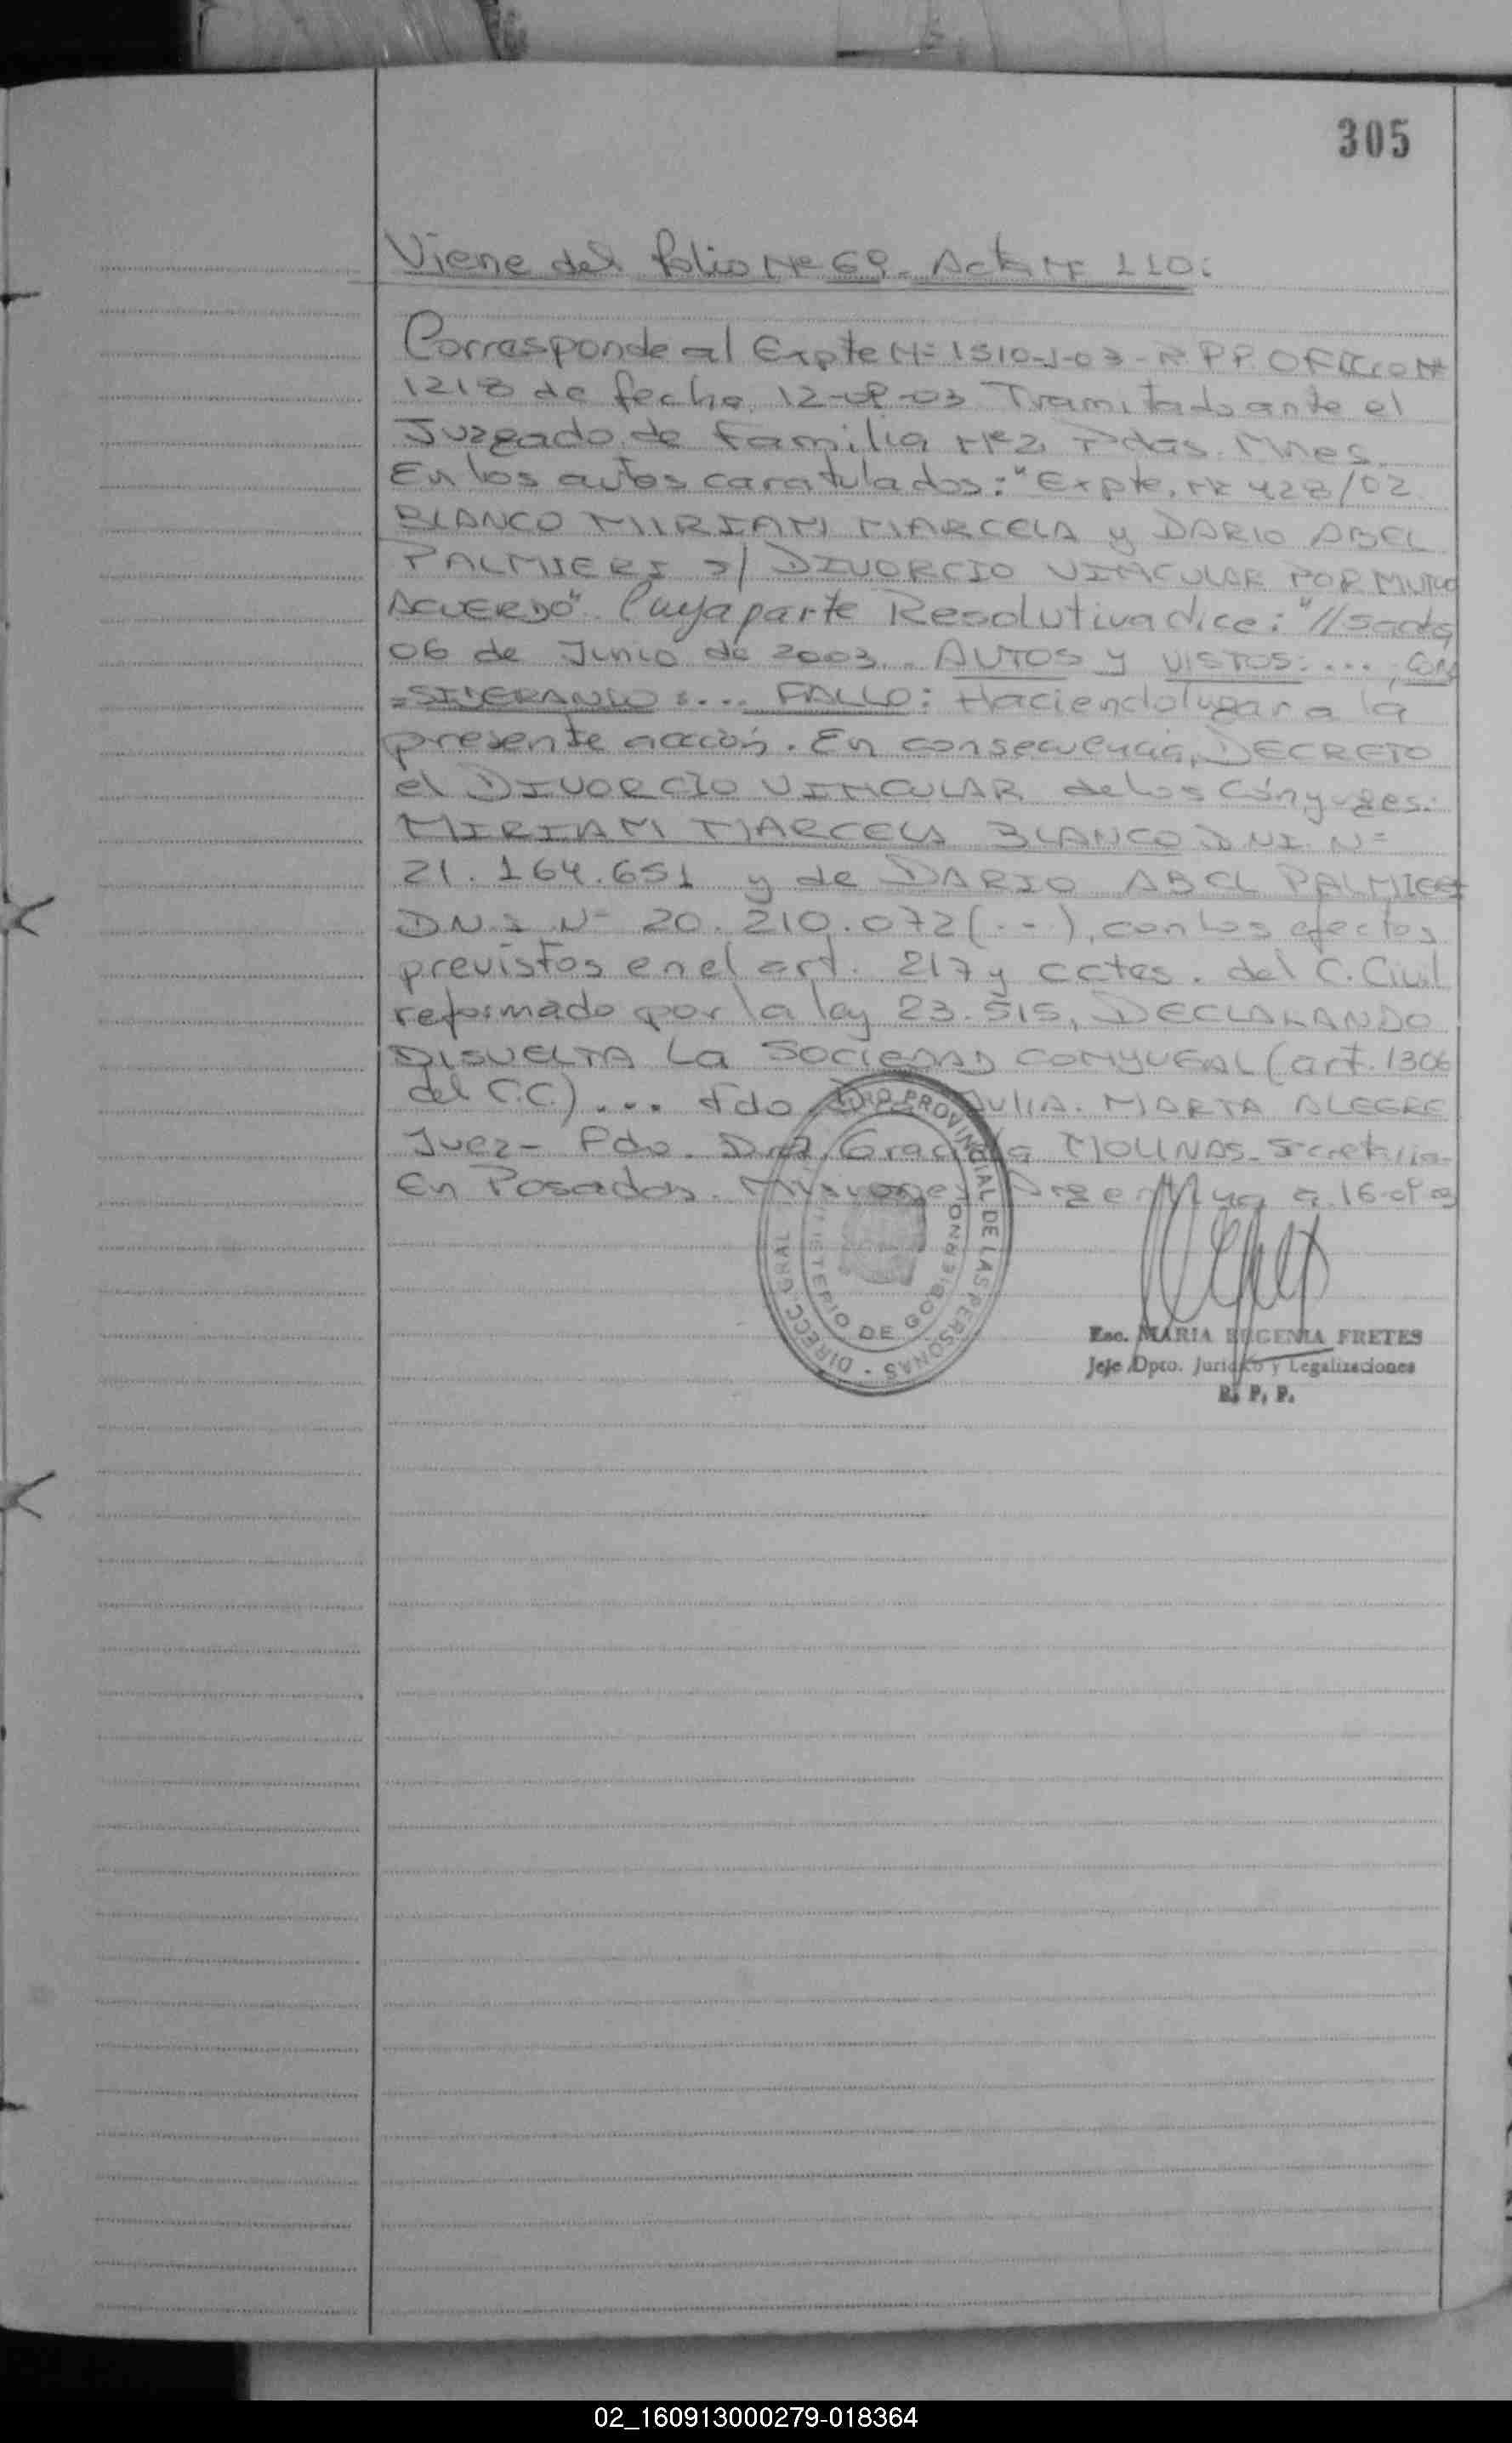 305
Viene del folio Nº 69. Acta Nº 110:
Corresponde al Expte Nº 1510-J-03-R.P.P. OFICIO Nº
1218 de fecha 12-09-03 Tramitado ante el
Juzgado de Familia Nº 2 Pdas. Mnes.
En los autos caratulados: "Expte. Nº 428/02
BLANCO MIRIAM MARCELA y DARIO ABEL
PALMIERI s/ DIVORCIO VINCULAR POR MUTUO
ACUERDO". Cuya parte Resolutiva dice: "//sadas
06 de Junio de 2003. AUTOS y VISTOS: ..., CON
=SIDERANDO: ... FALLO: Haciendo lugar a la
presente acción. En consecuencia, DECRETO
el DIVORCIO VINCULAR de los Cónyuges:
MIRIAM MARCELA BLANCO D.N.I. Nº
21.164.651 y de DARIO ABEL PALMIERI
D.N.I Nº 20.210.072 (...), con los efectos
previstos en el art. 217 y cctes. del C. Civil
reformado por la ley 23.515, DECLARANDO
DISUELTA La SOCIEDAD CONYUGAL (art. 1306
del C.C.) ... Fdo. Dra. JULIA MARTA ALEGRE
Juez - Fdo. Dra. Graciela MOLINAS - Secretaria-
En Posadas. Misiones, Argentina a 16-09-03
DIRECC. GRAL. PROVINCIAL DE LAS PERSONAS
MINISTERIO DE GOBIERNO
Esc. MARIA EUGENIA FRETES
Jefe Dpto. Jurídico y Legalizaciones
R. P. P.
02_160913000279-018364